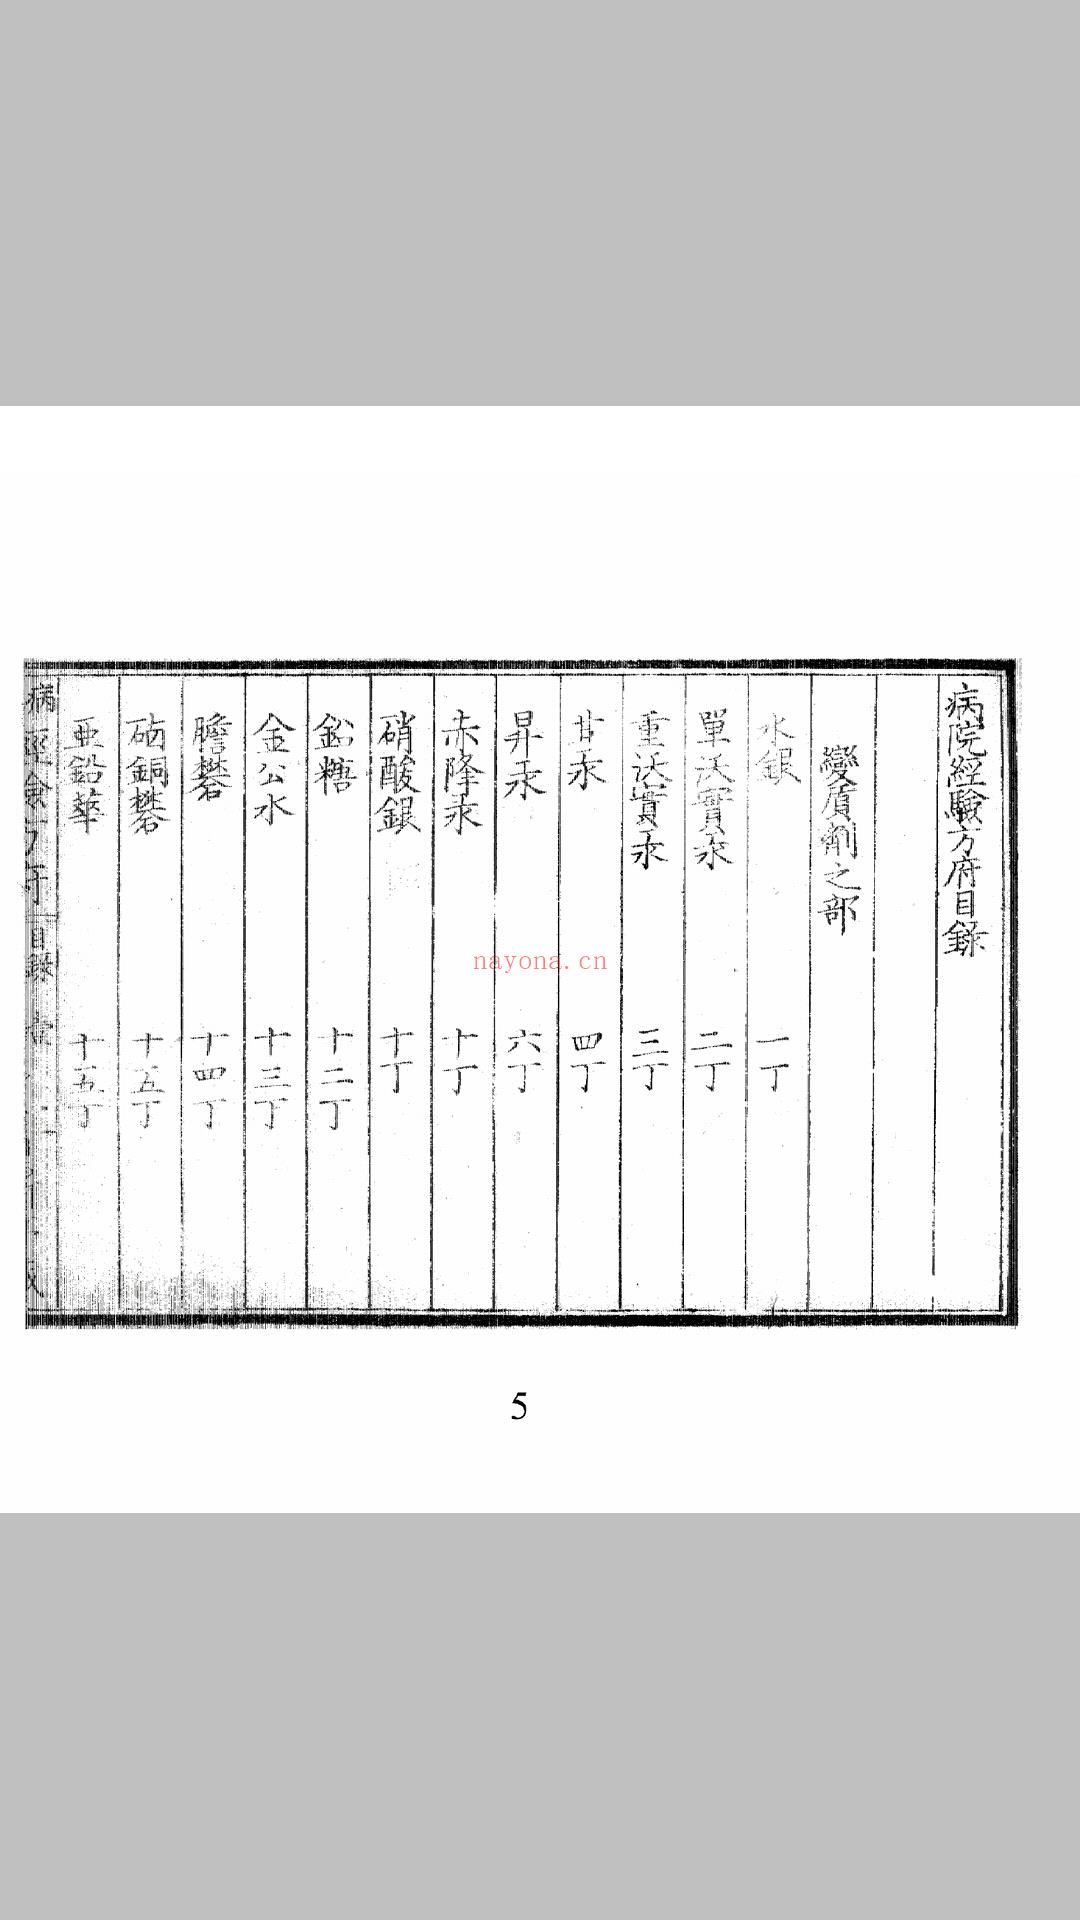 病院經驗方府目錄
變質劑之部
水銀 一丁
單沃實汞 二丁
重沃實汞 三丁
甘汞 四丁
昇汞 六丁
赤降汞 十丁
硝酸銀 十丁
鉛糖 十二丁
金公水 十三丁
膽礬 十四丁
硇銅礬 十五丁
亜鉛華 十五丁
目錄
nayona.cn
5